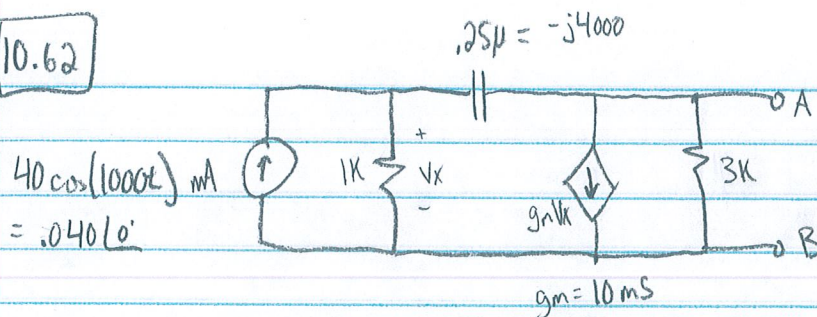 10.62
.25μ = -j4000
A
40 cos(1000t) mA
1K
+
Vx
-
gmVx
3K
= .040∠0°
B
gm = 10 mS